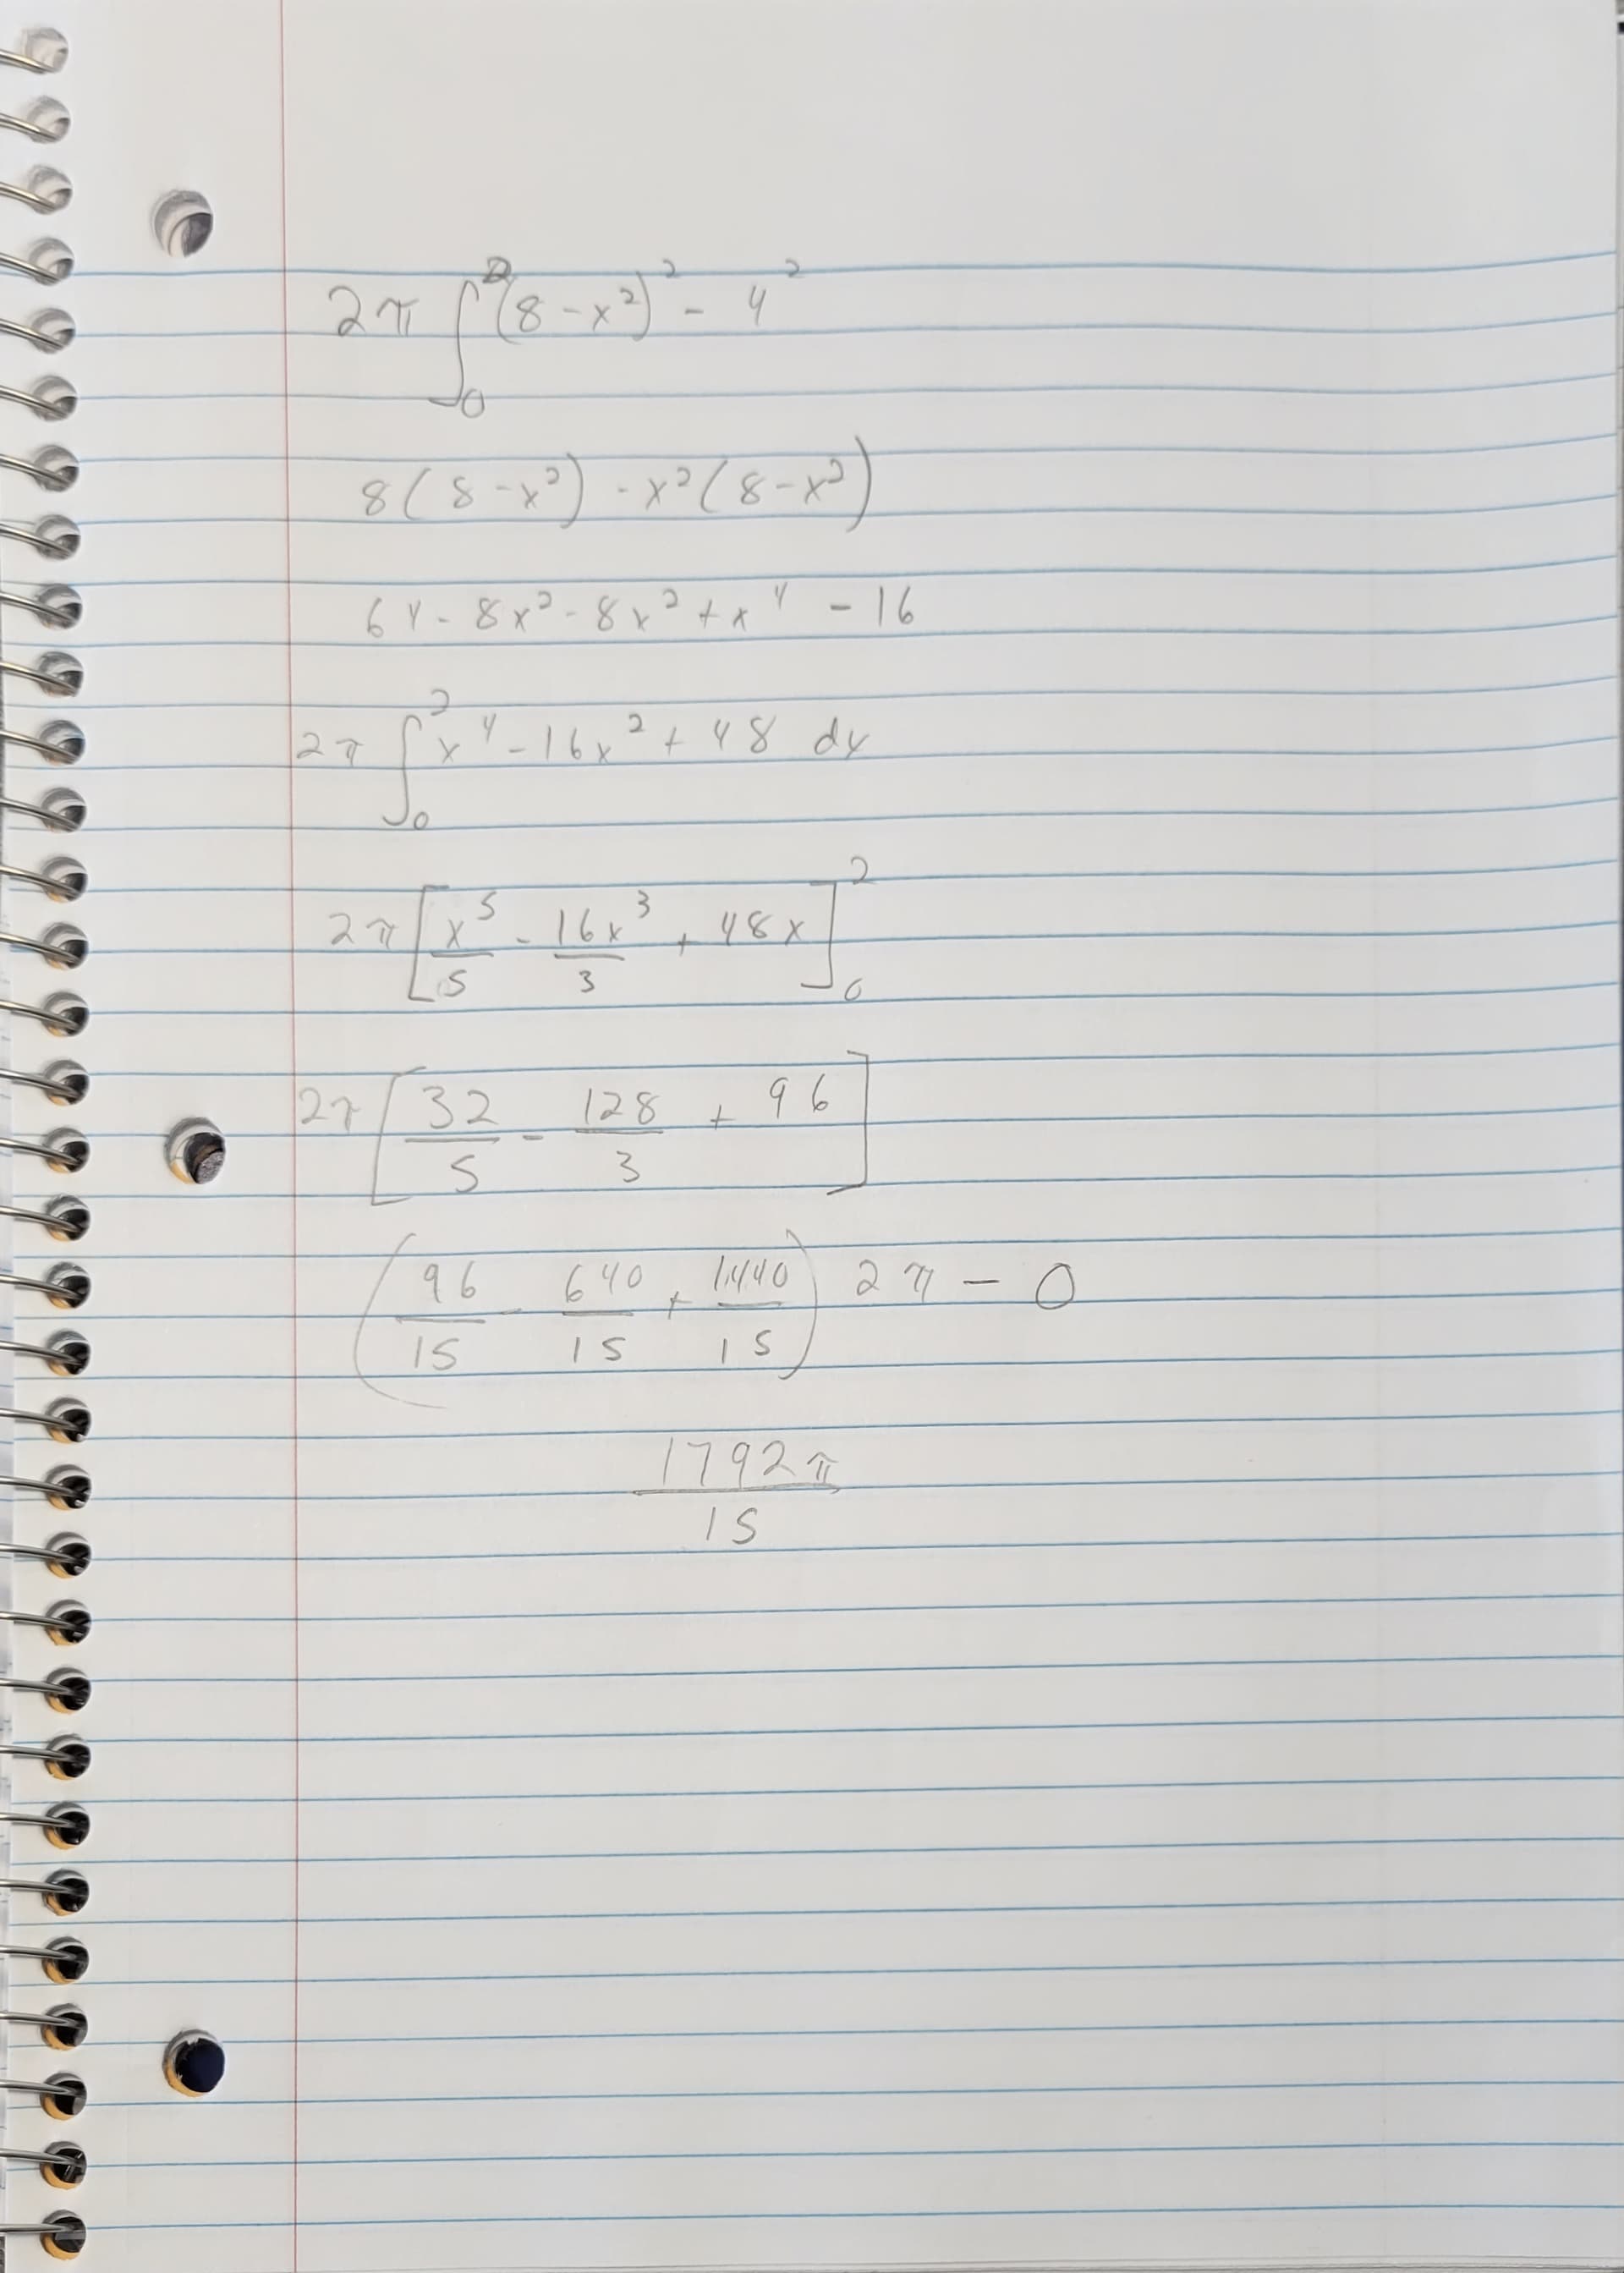 2π ∫₀² (8 - x²)² - 4²
8(8 - x²) - x²(8 - x²)
64 - 8x² - 8x² + x⁴ - 16
2π ∫₀² x⁴ - 16x² + 48 dx
2π [x⁵/5 - 16x³/3 + 48x]₀²
2π [32/5 - 128/3 + 96]
(96/15 - 640/15 + 1440/15) 2π - 0
1792π/15